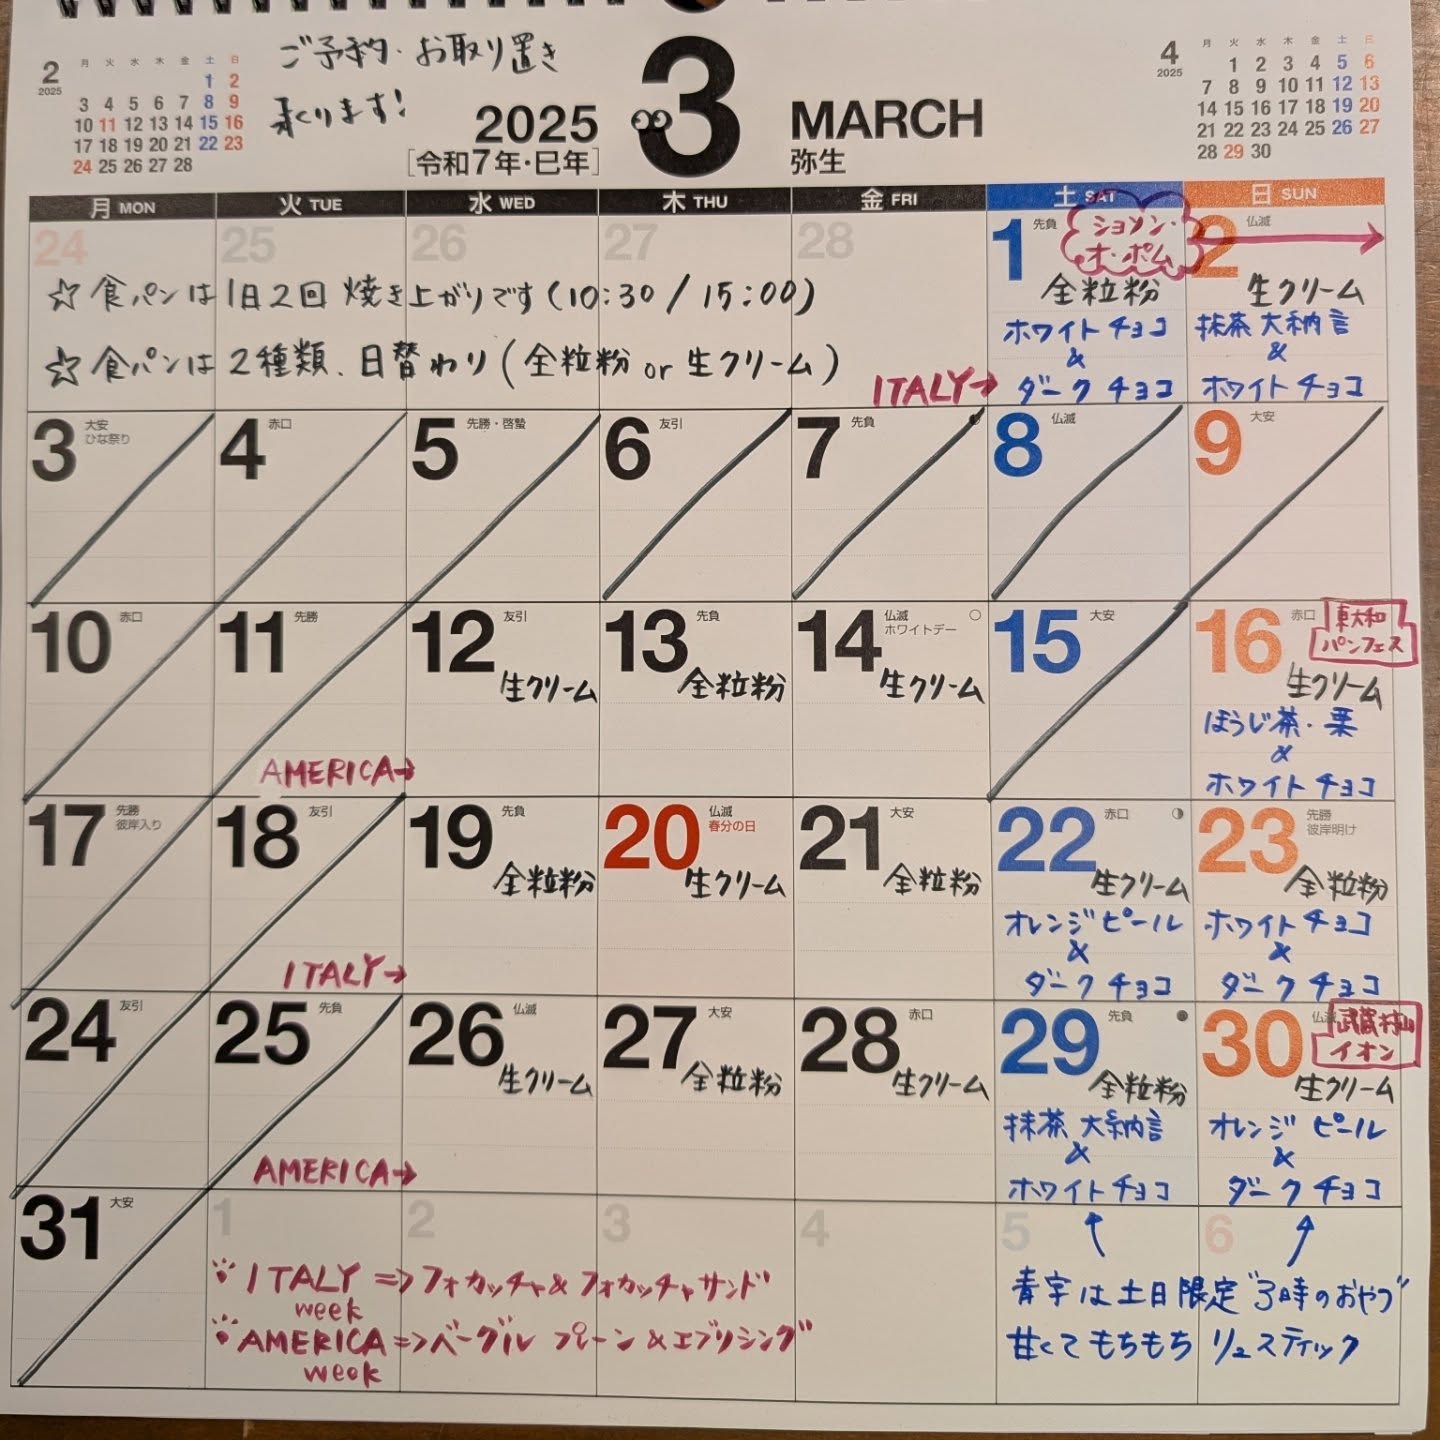 ご予約・お取り置き
承ります!
2
2025
月 火 水 木 金 土 日
1 2
3 4 5 6 7 8 9
10 11 12 13 14 15 16
17 18 19 20 21 22 23
24 25 26 27 28
2025
[令和7年・巳年]
3
MARCH
弥生
4
2025
月 火 水 木 金 土 日
1 2 3 4 5 6
7 8 9 10 11 12 13
14 15 16 17 18 19 20
21 22 23 24 25 26 27
28 29 30
月 MON 火 TUE 水 WED 木 THU 金 FRI 土 SAT 日 SUN
24 25 26 27 28
☆食パンは1日2回焼き上がりです(10:30/15:00)
☆食パンは2種類、日替わり(全粒粉 or 生クリーム)
ITALY→
1 先負
ショソン・
オ・ポム
全粒粉
ホワイトチョコ
&
ダークチョコ
2 仏滅
生クリーム
抹茶大納言
&
ホワイトチョコ
3 大安
ひな祭り
4 赤口
5 先勝・啓蟄
6 友引
7 先負
8 仏滅
9 大安
10 赤口
11 先勝
AMERICA→
12 友引
生クリーム
13 先負
全粒粉
14 仏滅
ホワイトデー
生クリーム
15 大安
16 赤口
東大和
パンフェス
生クリーム
ほうじ茶・栗
&
ホワイトチョコ
17 先勝
彼岸入り
18 友引
ITALY→
19 先負
全粒粉
20 仏滅
春分の日
生クリーム
21 大安
全粒粉
22 赤口
生クリーム
オレンジピール
&
ダークチョコ
23 先勝
彼岸明け
全粒粉
ホワイトチョコ
&
ダークチョコ
24 友引
25 先負
AMERICA→
26 仏滅
生クリーム
27 大安
全粒粉
28 赤口
生クリーム
29 先負
全粒粉
抹茶大納言
&
ホワイトチョコ
30 仏滅
武蔵村山
イオン
生クリーム
オレンジピール
&
ダークチョコ
31 大安
1 2 3 4 5 6
ITALY ⇒フォカッチャ&フォカッチャサンド
week
AMERICA⇒ベーグル プレーン&エブリシング
week
青字は土日限定"3時のおやつ"
甘くてもちもち リュスティック